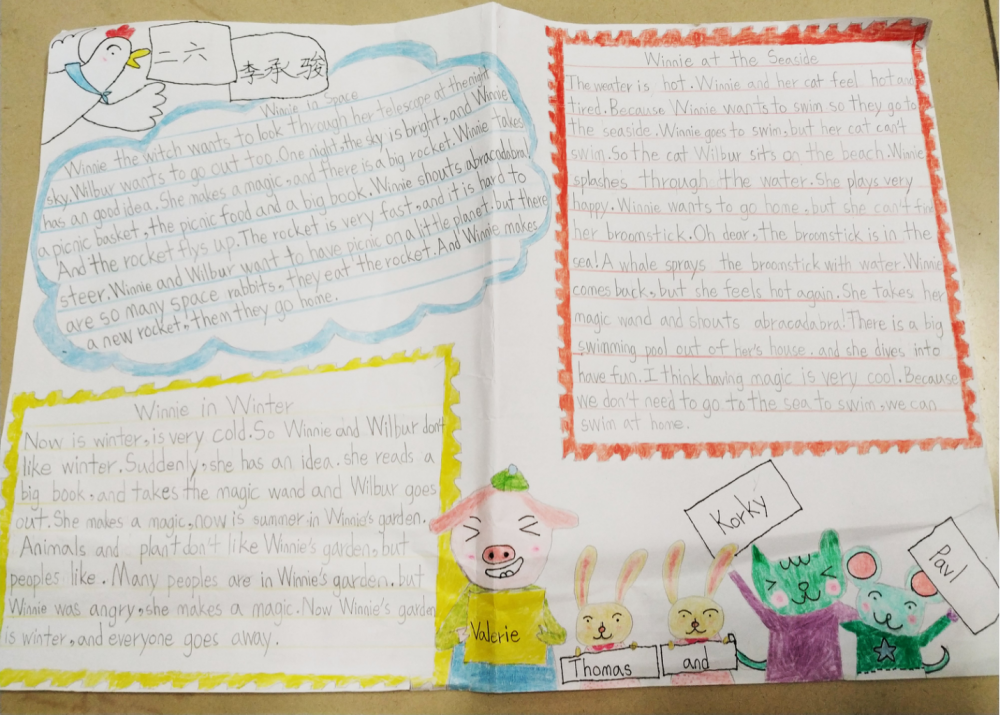 二六
李承骏
Winnie in Space
Winnie the witch wants to look through her telescope at the night
sky. Wilbur wants to go out too. One night, the sky is bright, and Winnie
has an good idea. She makes a magic, and there is a big rocket. Winnie takes
a picnic basket, the picnic food and a big book. Winnie shouts abracadabra!
And the rocket flys up. The rocket is very fast, and it is hard to
steer. Winnie and Wilbur want to have picnic on a little planet. but there
are so many space rabbits, they eat the rocket. And Winnie makes
a new rocket, Them they go home.
Winnie at the Seaside
The weater is hot. Winnie and her cat feel hot and
tired. Because Winnie wants to swim so they go to
the seaside. Winnie goes to swim, but her cat can't
swim. So the cat Wilbur sits on the beach. Winnie
splashes through the water. She plays very
happy. Winnie wants to go home, but she can't find
her broomstick. Oh dear, the broomstick is in the
sea! A whale sprays the broomstick with water. Winnie
comes back, but she feels hot again. She takes her
magic wand and shouts abracadabra! There is a big
swimming pool out of her's house. and she dives into
have fun. I think having magic is very cool. Because
we don't need to go to the sea to swim, we can
swim at home.
Winnie in Winter
Now is winter, is very cold. So Winnie and Wilbur don't
like winter. Suddenly, she has an idea. she reads a
big book, and takes the magic wand and Wilbur goes
out. She makes a magic, now is summer in Winnie's garden.
Animals and plant don't like Winnie's garden, but
peoples like. Many peoples are in Winnie's garden. but
Winnie was angry, she makes a magic. Now Winnie's garden
is winter, and everyone goes away.
Valerie
Thomas
and
Korky
Pavl